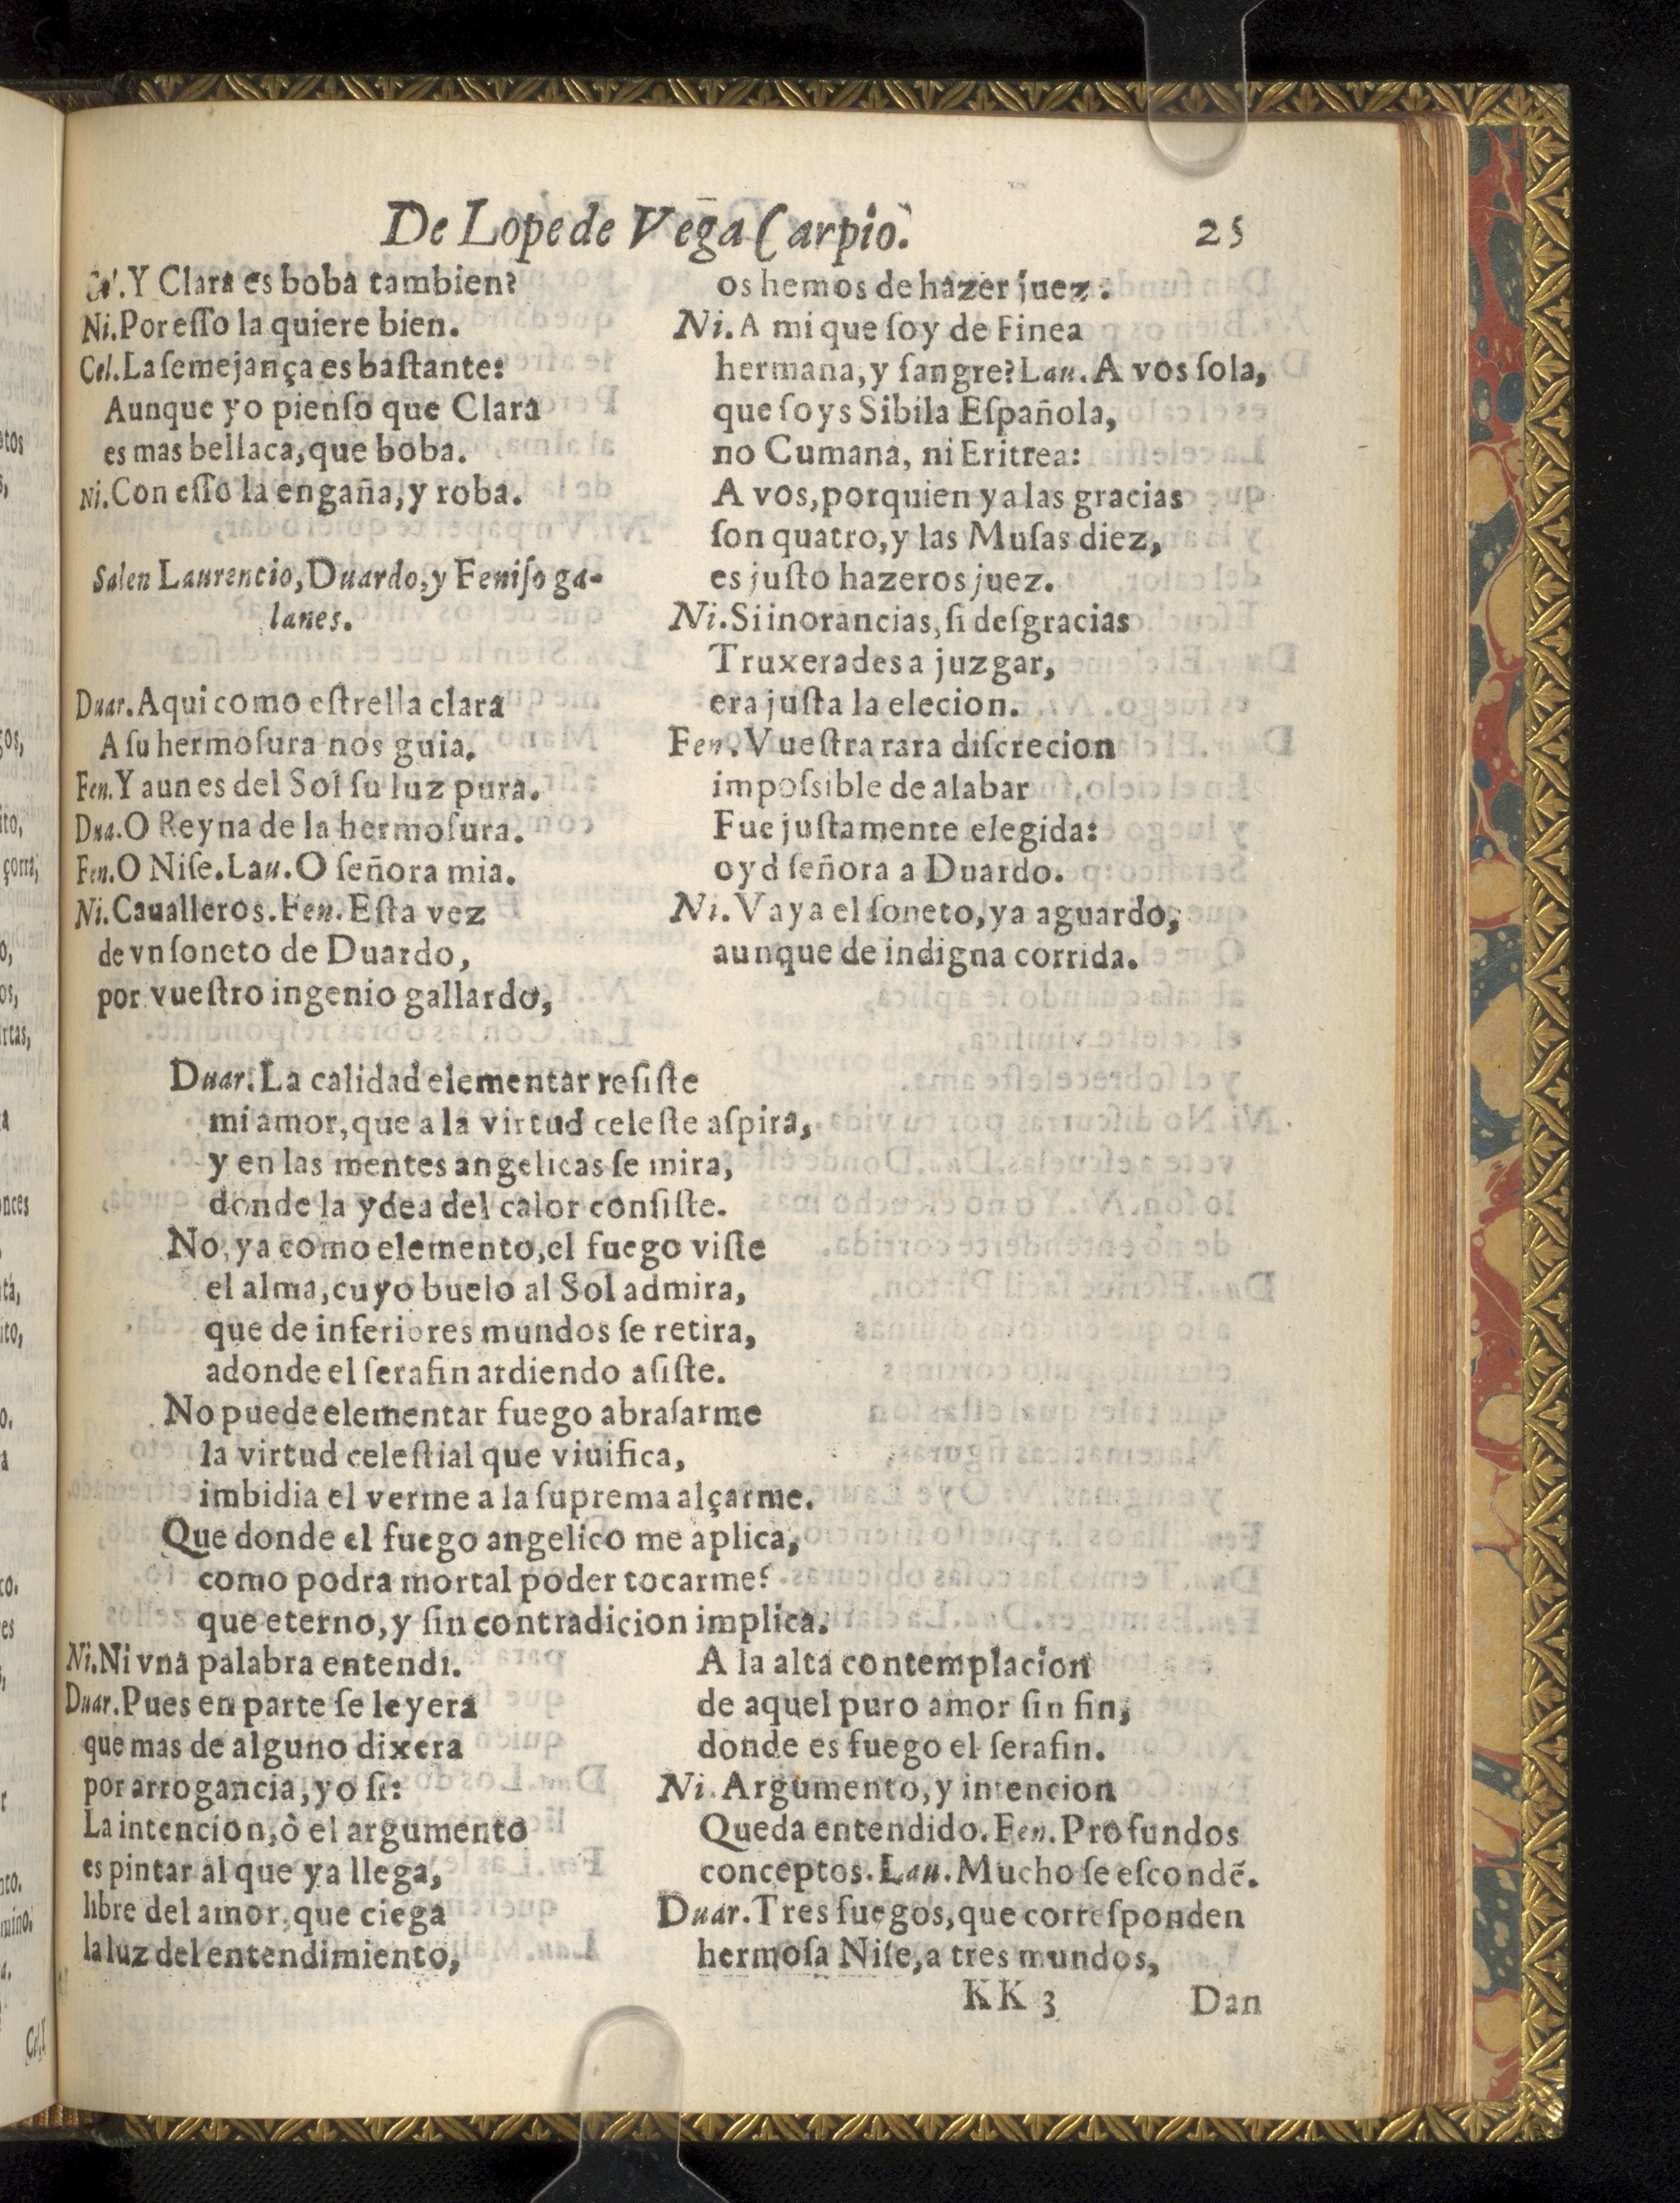 De Lope de Vega Carpio.
25
Cel. Y Clara es boba tambien?
Ni. Por eſſo la quiere bien.
Cel. La ſemejança es baſtante:
Aunque yo pienſo que Clara
es mas bellaca, que boba.
Ni. Con eſſo la engaña, y roba.
Salen Laurencio, Duardo, y Feniſo ga-
lanes.
Duar. Aqui como eſtrella clara
A ſu hermoſura nos guia.
Fen. Y aun es del Sol ſu luz pura.
Dua. O Reyna de la hermoſura.
Fen. O Niſe. Lau. O ſeñora mia.
Ni. Caualleros. Fen. Eſta vez
de vn ſoneto de Duardo,
por vueſtro ingenio gallardo,
os hemos de hazer juez.
Ni. A mi que ſoy de Finea
hermana, y ſangre? Lau. A vos ſola,
que ſoys Sibila Eſpañola,
no Cumana, ni Eritrea:
A vos, por quien ya las gracias
ſon quatro, y las Muſas diez,
es juſto hazeros juez.
Ni. Si inorancias, ſi deſgracias
Truxerades a juzgar,
era juſta la elecion.
Fen. Vueſtra rara diſcrecion
impoſsible de alabar
Fue juſtamente elegida:
oyd ſeñora a Duardo.
Ni. Vaya el ſoneto, ya aguardo,
aunque de indigna corrida.
Duar. La calidad elementar reſiſte
mi amor, que a la virtud celeſte aſpira,
y en las mentes angelicas ſe mira,
donde la ydea del calor conſiſte.
No, ya como elemento, el fuego viſte
el alma, cuyo buelo al Sol admira,
que de inferiores mundos ſe retira,
adonde el ſerafin ardiendo aſiſte.
No puede elementar fuego abraſarme
la virtud celeſtial que viuifica,
imbidia el verme a la ſuprema alçarme.
Que donde el fuego angelico me aplica,
como podra mortal poder tocarme?
que eterno, y fin contradicion implica.
Ni. Ni vna palabra entendi.
Duar. Pues en parte ſe leyera
que mas de alguno dixera
por arrogancia, yo ſi:
La intencion, ò el argumento
es pintar al que ya llega,
libre del amor, que ciega
la luz del entendimiento,
A la alta contemplacion
de aquel puro amor ſin fin,
donde es fuego el ſerafin.
Ni. Argumento, y intencion
Queda entendido. Fen. Profundos
conceptos. Lau. Mucho ſe eſcondẽ.
Duar. Tres fuegos, que correſponden
hermoſa Niſe, a tres mundos,
KK 3
Dan